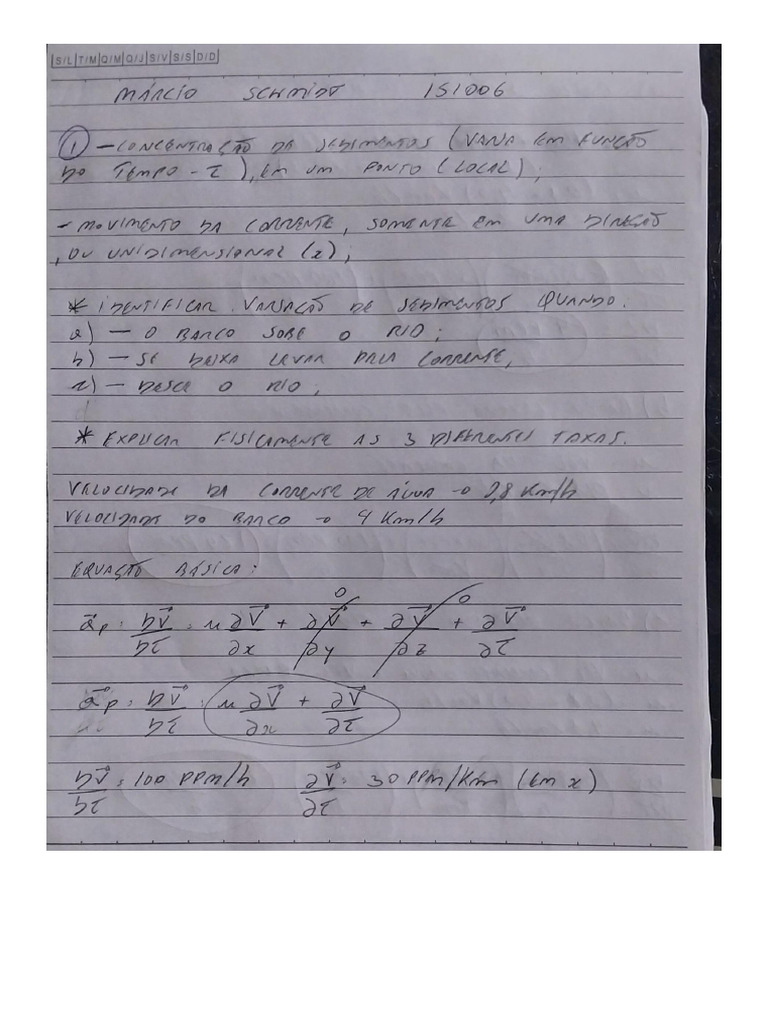 S/L T/M Q/M Q/J S/V S/S D/D
MÁRCIO SCHMIDT 151006
① - CONCENTRAÇÃO DE SEDIMENTOS (VARIA EM FUNÇÃO
DO TEMPO - T), EM UM PONTO (LOCAL);
- MOVIMENTO DA CORRENTE, SOMENTE EM UMA DIREÇÃO
, OU UNIDIMENSIONAL (x);
* IDENTIFICAR VARIAÇÃO DE SEDIMENTOS QUANDO.
a) - O BARCO SOBE O RIO;
b) - SE DEIXA LEVAR PELA CORRENTE,
c) - DESCE O RIO;
* EXPLICAR FISICAMENTE AS 3 DIFERENTES TAXAS.
VELOCIDADE DA CORRENTE DE ÁGUA → 0,8 Km/h
VELOCIDADE DO BARCO → 4 Km/h
EQUAÇÃO BÁSICA:
a⃗p = DV⃗/DT = u ∂V⃗/∂x + ∂V⃗/∂y 0 + ∂V⃗/∂z 0 + ∂V⃗/∂T
a⃗p = DV⃗/DT = u ∂V⃗/∂x + ∂V⃗/∂T
DV⃗/DT = 100 PPM/h ∂V⃗/∂T = 30 PPM/Km (EM x)